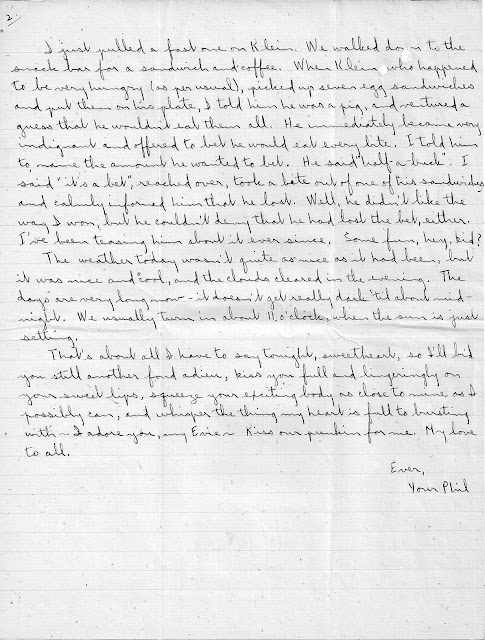 2.
I just pulled a fast one on Klein. We walked down to the
snack bar for a sandwich and coffee. When Klein, who happened
to be very hungry (as per usual), picked up seven egg sandwiches
and put them on his plate, I told him he was a pig, and ventured a
guess that he wouldn't eat them all. He immediately became very
indignant and offered to bet he would eat every bite. I told him
to name the amount he wanted to bet. He said "half-a-buck". I
said "it's a bet", reached over, took a bite out of one of his sandwiches
and calmly informed him that he lost. Well, he didn't like the
way I won, but he couldn't deny that he had lost the bet, either.
I've been teasing him about it ever since. Some fun, hey, kid?
The weather today wasn't quite as nice as it had been, but
it was nice and cool, and the clouds cleared in the evening. The
days are very long now - it doesn't get really dark 'til about mid-
night. We usually turn in about 11 o'clock, when the sun is just
setting.
That's about all I have to say tonight, sweetheart, so I'll bid
you still another fond adieu, kiss you full and lingeringly on
your sweet lips, squeeze your exciting body as close to mine as I
possibly can, and whisper the thing my heart is full to bursting
with - I adore you, my Evie - Kiss our punkin for me. My love
to all.
Ever,
Your Phil